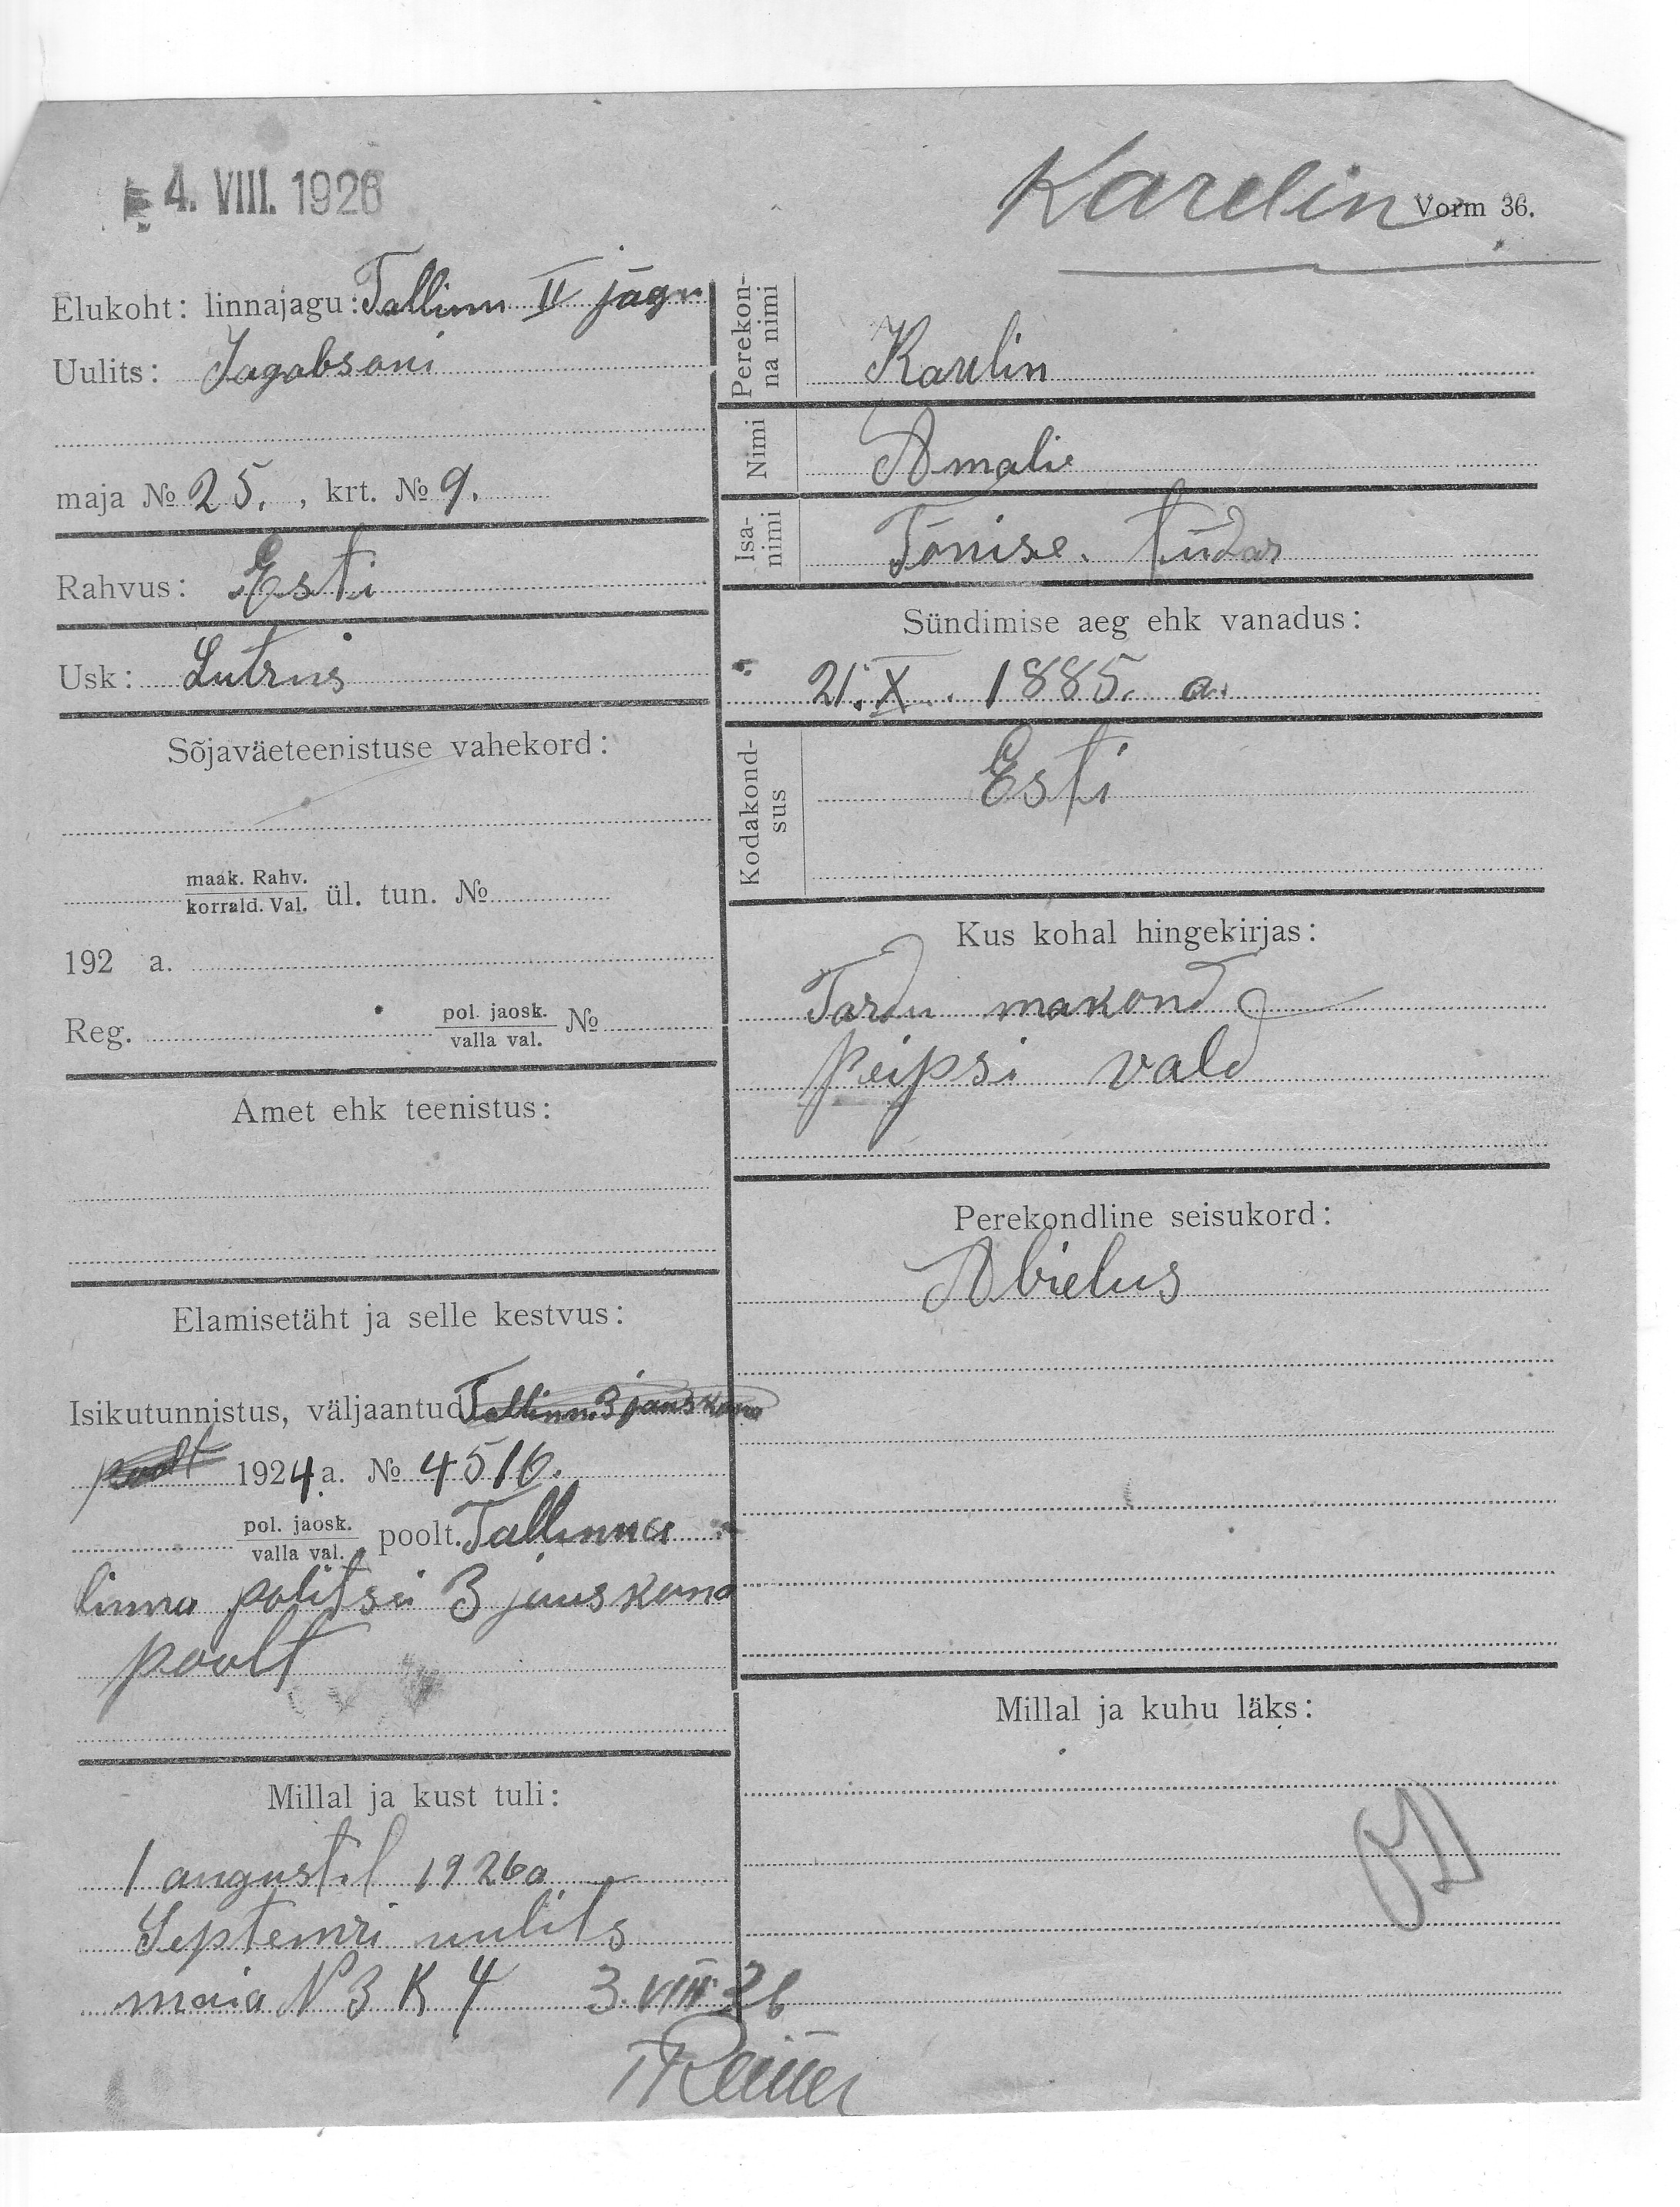 4. VIII. 1926
Karelin
Vorm 36.
Elukoht: linnajagu: Tallinn II jagu
Uulits: Jagobsoni
maja № 25., krt. № 9.
Rahvus: Esti
Usk: Lutrus
Sõjaväeteenistuse vahekord:
maak. Rahv.
korrald. Val. ül. tun. №
192 a.
Reg. pol. jaosk.
valla val. №
Amet ehk teenistus:
Elamisetäht ja selle kestvus:
Isikutunnistus, väljaantud Tallinn 3 jauskono
poolt 1924 a. № 4516.
pol. jaosk.
valla val. poolt. Tallinna
linna politsei 3 jauskono
poolt
Millal ja kust tuli:
1 augustil 1926 a
Septemri uulits
maia N 3 K 4 3. VIII 26
Perekon-
na nimi
Karelin
Nimi
Amalie
Isa-
nimi
Tõnise. tüdar
Sündimise aeg ehk vanadus:
21. X. 1885. a.
Kodakond-
sus
Esti
Kus kohal hingekirjas:
Tardu makond
Peipsi vald
Perekondline seisukord:
Abielus
Millal ja kuhu läks: